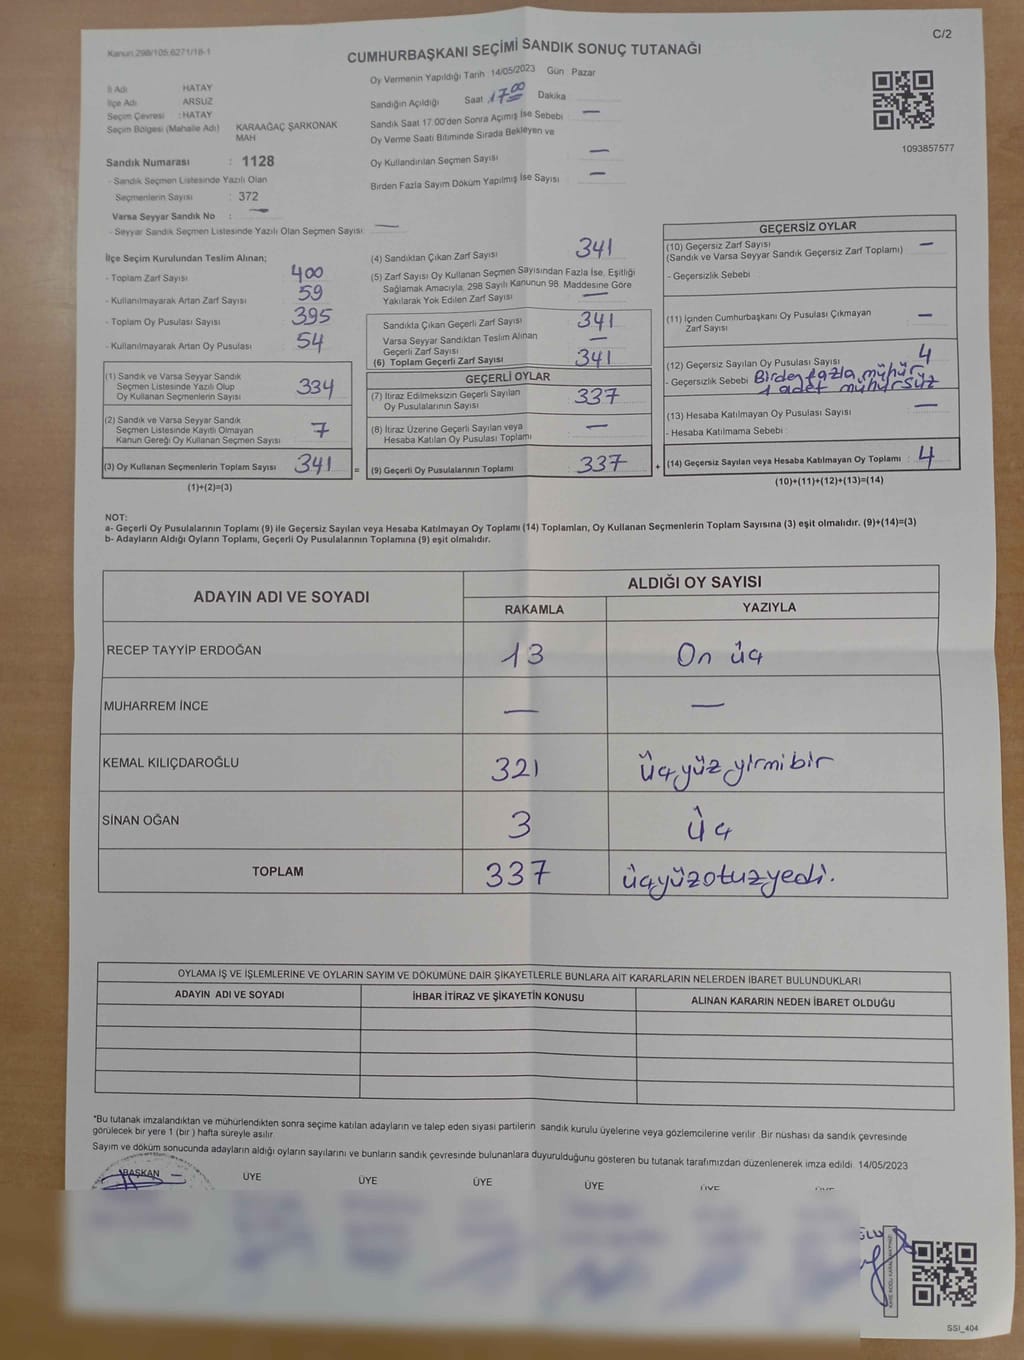 Kanun 298/105,6271/18-1
CUMHURBAŞKANI SEÇİMİ SANDIK SONUÇ TUTANAĞI
C/2
Oy Vermenin Yapıldığı Tarih 14/05/2023 Gün Pazar
İl Adı HATAY
İlçe Adı ARSUZ
Seçim Çevresi : HATAY
Seçim Bölgesi (Mahalle Adı) KARAAĞAÇ ŞARKONAK
MAH
Sandığın Açıldığı Saat 17.00 Dakika
Sandık Saat 17:00'den Sonra Açılmış İse Sebebi —
Oy Verme Saati Bitiminde Sırada Bekleyen ve
Oy Kullandırılan Seçmen Sayısı —
Birden Fazla Sayım Döküm Yapılmış İse Sayısı —
1093857577
Sandık Numarası : 1128
- Sandık Seçmen Listesinde Yazılı Olan
Seçmenlerin Sayısı : 372
Varsa Seyyar Sandık No : —
- Seyyar Sandık Seçmen Listesinde Yazılı Olan Seçmen Sayısı: —
İlçe Seçim Kurulundan Teslim Alınan;
- Toplam Zarf Sayısı 400
- Kullanılmayarak Artan Zarf Sayısı 59
- Toplam Oy Pusulası Sayısı 395
- Kullanılmayarak Artan Oy Pusulası 54
(1) Sandık ve Varsa Seyyar Sandık
Seçmen Listesinde Yazılı Olup
Oy Kullanan Seçmenlerin Sayısı 334
(2) Sandık ve Varsa Seyyar Sandık
Seçmen Listesinde Kayıtlı Olmayan
Kanun Gereği Oy Kullanan Seçmen Sayısı 7
(3) Oy Kullanan Seçmenlerin Toplam Sayısı 341 =
(1)+(2)=(3)
(4) Sandıktan Çıkan Zarf Sayısı 341
(5) Zarf Sayısı Oy Kullanan Seçmen Sayısından Fazla İse, Eşitliği
Sağlamak Amacıyla, 298 Sayılı Kanunun 98. Maddesine Göre
Yakılarak Yok Edilen Zarf Sayısı —
Sandıkta Çıkan Geçerli Zarf Sayısı 341
Varsa Seyyar Sandıktan Teslim Alınan
Geçerli Zarf Sayısı —
(6) Toplam Geçerli Zarf Sayısı 341
GEÇERLİ OYLAR
(7) İtiraz Edilmeksizin Geçerli Sayılan
Oy Pusulalarının Sayısı 337
(8) İtiraz Üzerine Geçerli Sayılan veya
Hesaba Katılan Oy Pusulası Toplamı —
(9) Geçerli Oy Pusulalarının Toplamı 337 +
GEÇERSİZ OYLAR
(10) Geçersiz Zarf Sayısı —
(Sandık ve Varsa Seyyar Sandık Geçersiz Zarf Toplamı)
- Geçersizlik Sebebi
(11) İçinden Cumhurbaşkanı Oy Pusulası Çıkmayan
Zarf Sayısı —
(12) Geçersiz Sayılan Oy Pusulası Sayısı 4
- Geçersizlik Sebebi Birden fazla mühür
1 adet mühürsüz
(13) Hesaba Katılmayan Oy Pusulası Sayısı —
- Hesaba Katılmama Sebebi :
(14) Geçersiz Sayılan veya Hesaba Katılmayan Oy Toplamı : 4
(10)+(11)+(12)+(13)=(14)
NOT:
a- Geçerli Oy Pusulalarının Toplamı (9) ile Geçersiz Sayılan veya Hesaba Katılmayan Oy Toplamı (14) Toplamları, Oy Kullanan Seçmenlerin Toplam Sayısına (3) eşit olmalıdır. (9)+(14)=(3)
b- Adayların Aldığı Oyların Toplamı, Geçerli Oy Pusulalarının Toplamına (9) eşit olmalıdır.
ADAYIN ADI VE SOYADI ALDIĞI OY SAYISI
RAKAMLA YAZIYLA
RECEP TAYYİP ERDOĞAN 13 On üç
MUHARREM İNCE — —
KEMAL KILIÇDAROĞLU 321 üçyüzyirmibir
SİNAN OĞAN 3 üç
TOPLAM 337 üçyüzotuzyedi.
OYLAMA İŞ VE İŞLEMLERİNE VE OYLARIN SAYIM VE DÖKÜMÜNE DAİR ŞİKAYETLERLE BUNLARA AİT KARARLARIN NELERDEN İBARET BULUNDUKLARI
ADAYIN ADI VE SOYADI İHBAR İTİRAZ VE ŞİKAYETİN KONUSU ALINAN KARARIN NEDEN İBARET OLDUĞU
*Bu tutanak imzalandıktan ve mühürlendikten sonra seçime katılan adayların ve talep eden siyasi partilerin sandık kurulu üyelerine veya gözlemcilerine verilir. Bir nüshası da sandık çevresinde
görülecek bir yere 1 (bir) hafta süreyle asılır.
Sayım ve döküm sonucunda adayların aldığı oyların sayılarını ve bunların sandık çevresinde bulunanlara duyurulduğunu gösteren bu tutanak tarafımızdan düzenlenerek imza edildi. 14/05/2023
BAŞKAN ÜYE ÜYE ÜYE ÜYE ÜYE
SSI_404